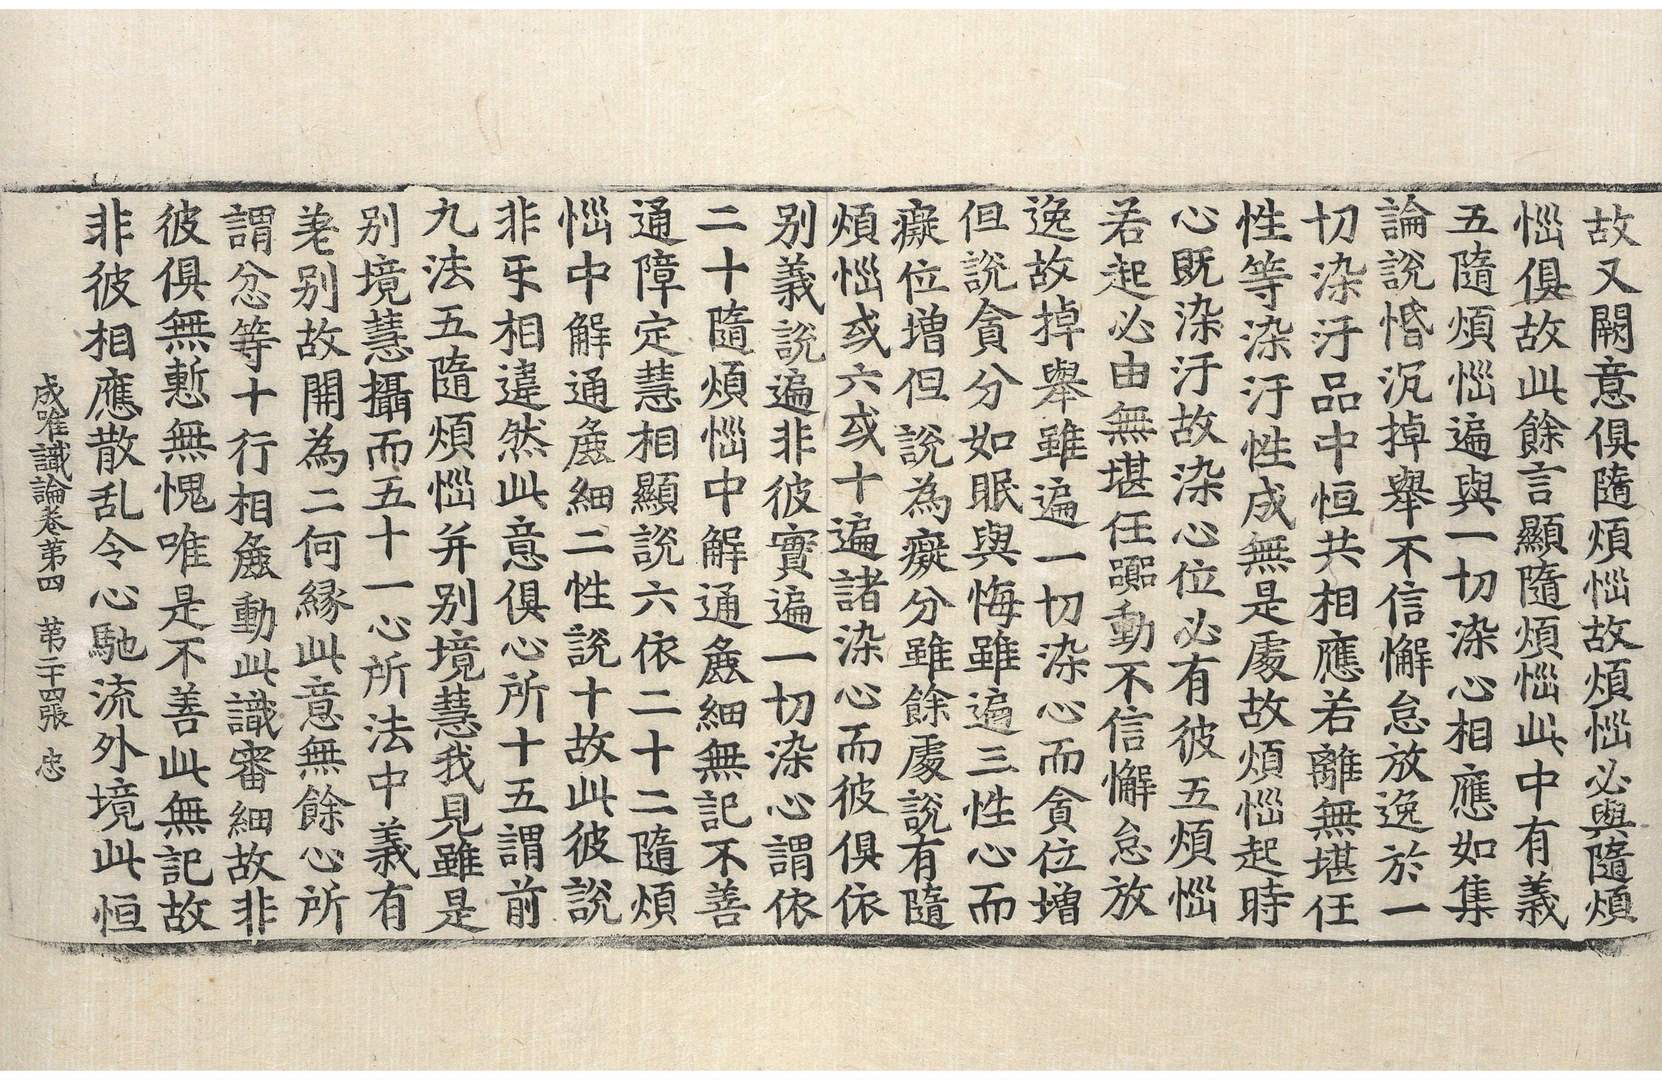 故又闕意俱隨煩惱故煩惱必與隨煩
惱俱故此餘言顯隨煩惱此中有義
五隨煩惱遍與一切染心相應如集
論說惛沉掉舉不信懈怠放逸於一
切染汙品中恒共相應若離無堪任
性等染汙性成無是處故煩惱起時
心既染汙故染心位必有彼五煩惱
若起必由無堪任嚻動不信懈怠放
逸故掉舉雖遍一切染心而貪位增
但說貪分如眠與悔雖遍三性心而
癡位增但說為癡分雖餘處說有隨
煩惱或六或十遍諸染心而彼俱依
別義說遍非彼實遍一切染心謂依
二十隨煩惱中解通麁細無記不善
通障定慧相顯說六依二十二隨煩
惱中解通麁細二性說十故此彼說
非乐相違然此意俱心所十五謂前
九法五隨煩惱并別境慧我見雖是
別境慧攝而五十一心所法中義有
差別故開為二何緣此意無餘心所
謂忿等十行相麁動此識審細故非
彼俱無慙無愧唯是不善此無記故
非彼相應散乱令心馳流外境此恒
成唯識論卷第四　第二十四張　忠